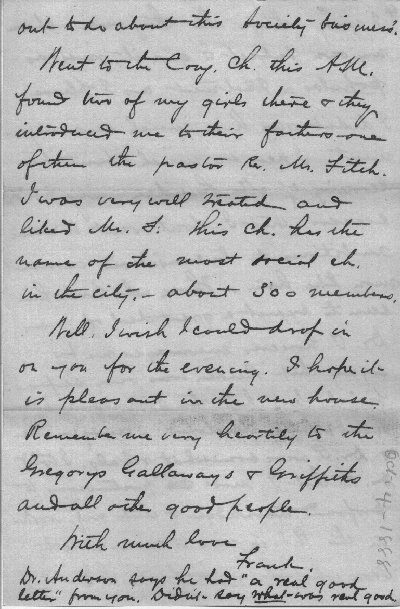 out to do about this Society business.
Went to the Cong. Ch. this A.M.
found two of my girls there & they
introduced me to their fathers - one
of them the pastor Re. Mr. Fitch.
I was very well treated and
liked Mr. F. This ch. has the
name of the most social ch.
in the city. - about 500 members.
Well, I wish I could drop in
on you for the evening. I hope it
is pleasant in the new house.
Remember me very heartily to the
Gregorys Gallaways & Griffiths
and all other good people.
With much love
Frank.
Dr. Anderson says he had "a real good
letter" from you. Didn't say what - was real good
Oct 4 - 1888